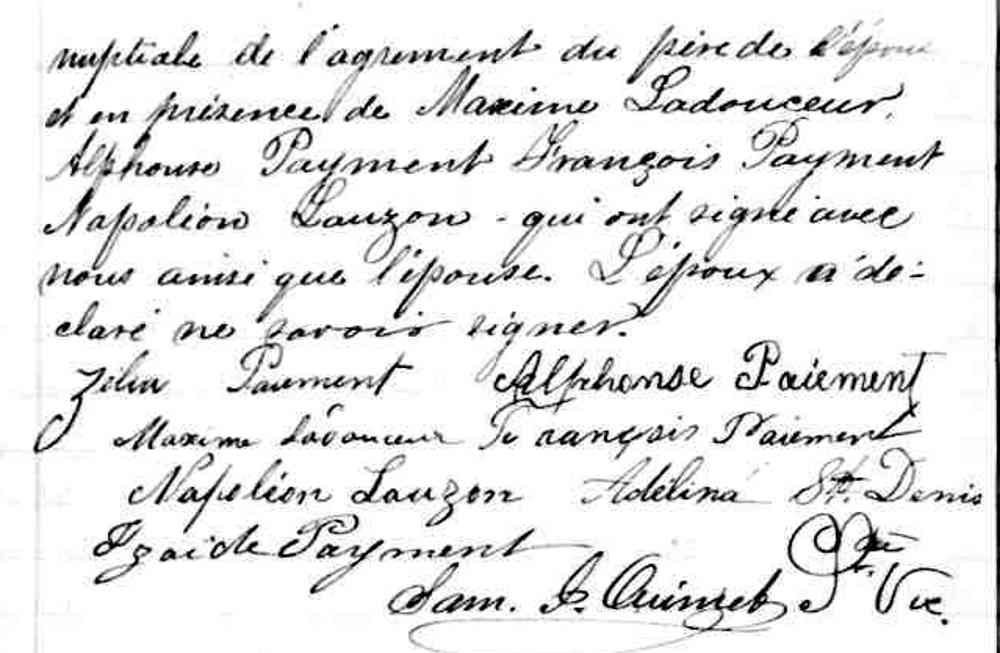 nuptiale de l'agrement du père de l'épouse
et en présence de Maxime Ladouceur,
Alphonse Payment François Payment
Napoléon Lauzon - qui ont signé avec
nous ainsi que l'épouse. L'époux a dé-
claré ne savoir signer.
Zélia Paiement Alphonse Paiement
Maxime Ladouceur François Paiement
Napoléon Lauzon Adélina St. Denis
Izaide Payment
Sam. J. Ouimet Ptre Vic.